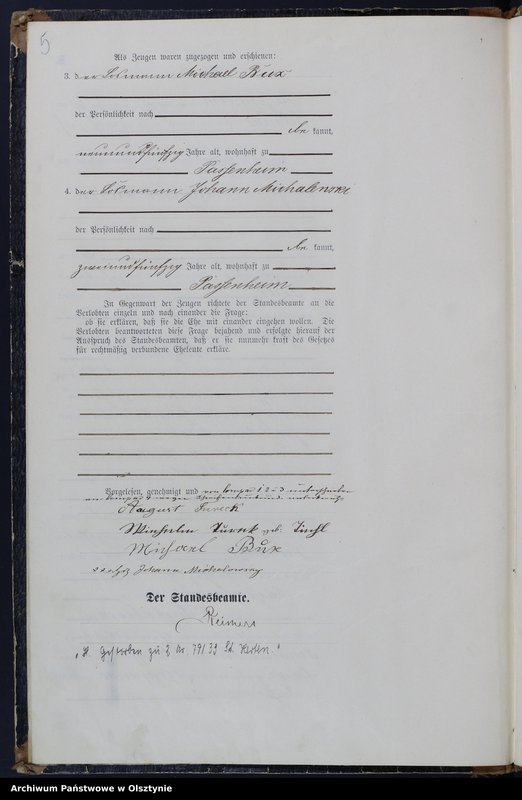 5
Als Zeugen waren zugezogen und erschienen:
3. der Losmann Michael Bux
der Persönlichkeit nach
be kannt,
neunundfünfzig Jahre alt, wohnhaft zu
Passenheim
4. der Losmann Johann Michalowski
der Persönlichkeit nach
be kannt,
zweiundfünfzig Jahre alt, wohnhaft zu
Passenheim
In Gegenwart der Zeugen richtete der Standesbeamte an die
Verlobten einzeln und nach einander die Frage:
ob sie erklären, daß sie die Ehe mit einander eingehen wollen. Die
Verlobten beantworteten diese Frage bejahend und erfolgte hierauf der
Ausspruch des Standesbeamten, daß er sie nunmehr kraft des Gesetzes
für rechtmäßig verbundene Eheleute erkläre.
Vorgelesen, genehmigt und von 1 2 u 3 unterschrieben
wegen
August
geb.
Michael Bux
Johann Michalowsky
Der Standesbeamte.
Reimers
Gestorben zu 2 Nr. 79/39 St.
Archiwum Państwowe w Olsztynie